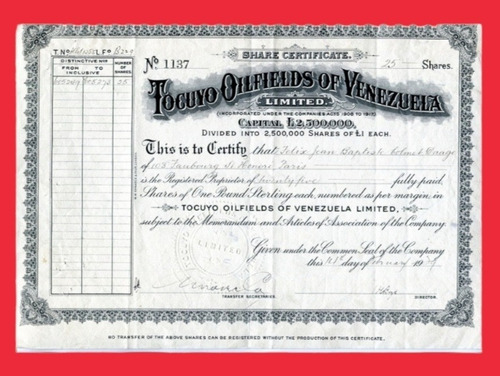 SHARE CERTIFICATE.
No 1137
25 Shares.
DISTINCTIVE Nos
FROM TO
INCLUSIVE
NUMBER
OF
SHARES.
25
TOCUYO OILFIELDS OF VENEZUELA
LIMITED.
(INCORPORATED UNDER THE COMPANIES ACTS 1908 TO 1917)
CAPITAL £2,500,000.
DIVIDED INTO 2,500,000 SHARES OF £1 EACH.
This is to Certify that Felix Jean Baptiste
of 103 Faubourg St Honoré, Paris
is the Registered Proprietor of twenty five fully paid
Shares of One Pound Sterling each, numbered as per margin, in
TOCUYO OILFIELDS OF VENEZUELA LIMITED,
subject to the Memorandum and Articles of Association of the Company.
Given under the Common Seal of the Company
this day of 19
LIMITED
TRANSFER SECRETARIES.
DIRECTOR.
NO TRANSFER OF THE ABOVE SHARES CAN BE REGISTERED WITHOUT THE PRODUCTION OF THIS CERTIFICATE.